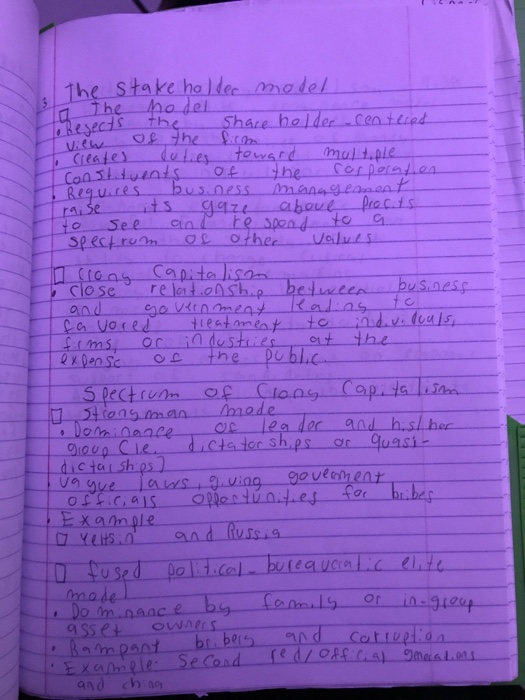 The stakeholder model
□ The model
• Rejects the shareholder-centered
view of the firm
• Creates duties toward multiple
constituents of the corporation
• Requires business management
raise its gaze above profits
to see and respond to a
spectrum of other values
□ Crony Capitalism
• close relationship between business
and government leading to
favored treatment to individuals,
firms, or industries at the
expense of the public.
Spectrum of Crony Capitalism
□ Strongman mode
• Dominance of leader and his/her
group (ie. dictatorships or quasi-
dictaiships)
• Vague laws, giving goverment
officials opportunities for bribes
• Example
□ Yeltsin and Russia
□ fused political-bureaucratic elite
model
• Dominance by family or in-group
asset owners
• Rampant bribery and corruption
• Example: Second red/official generations
and china